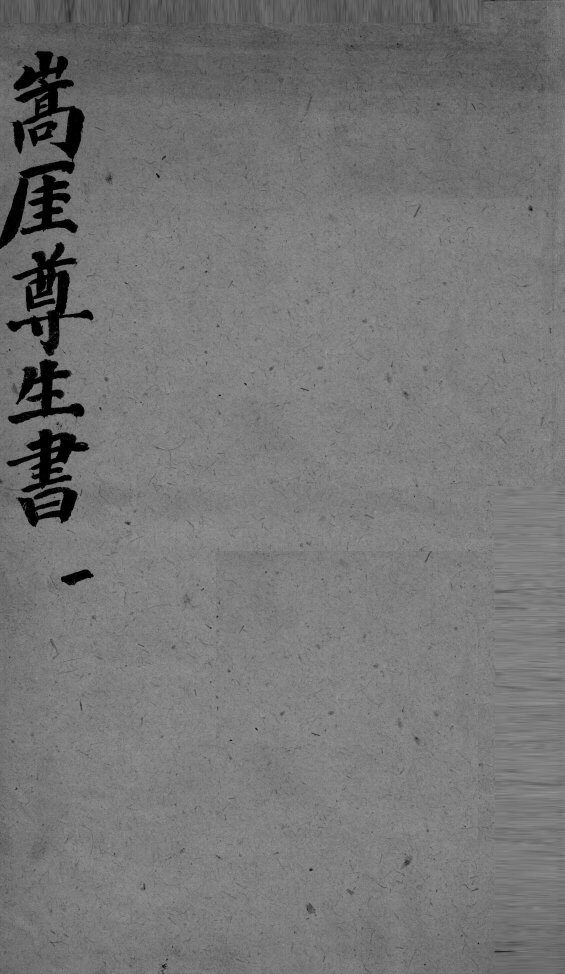 嵩厓尊生書 一